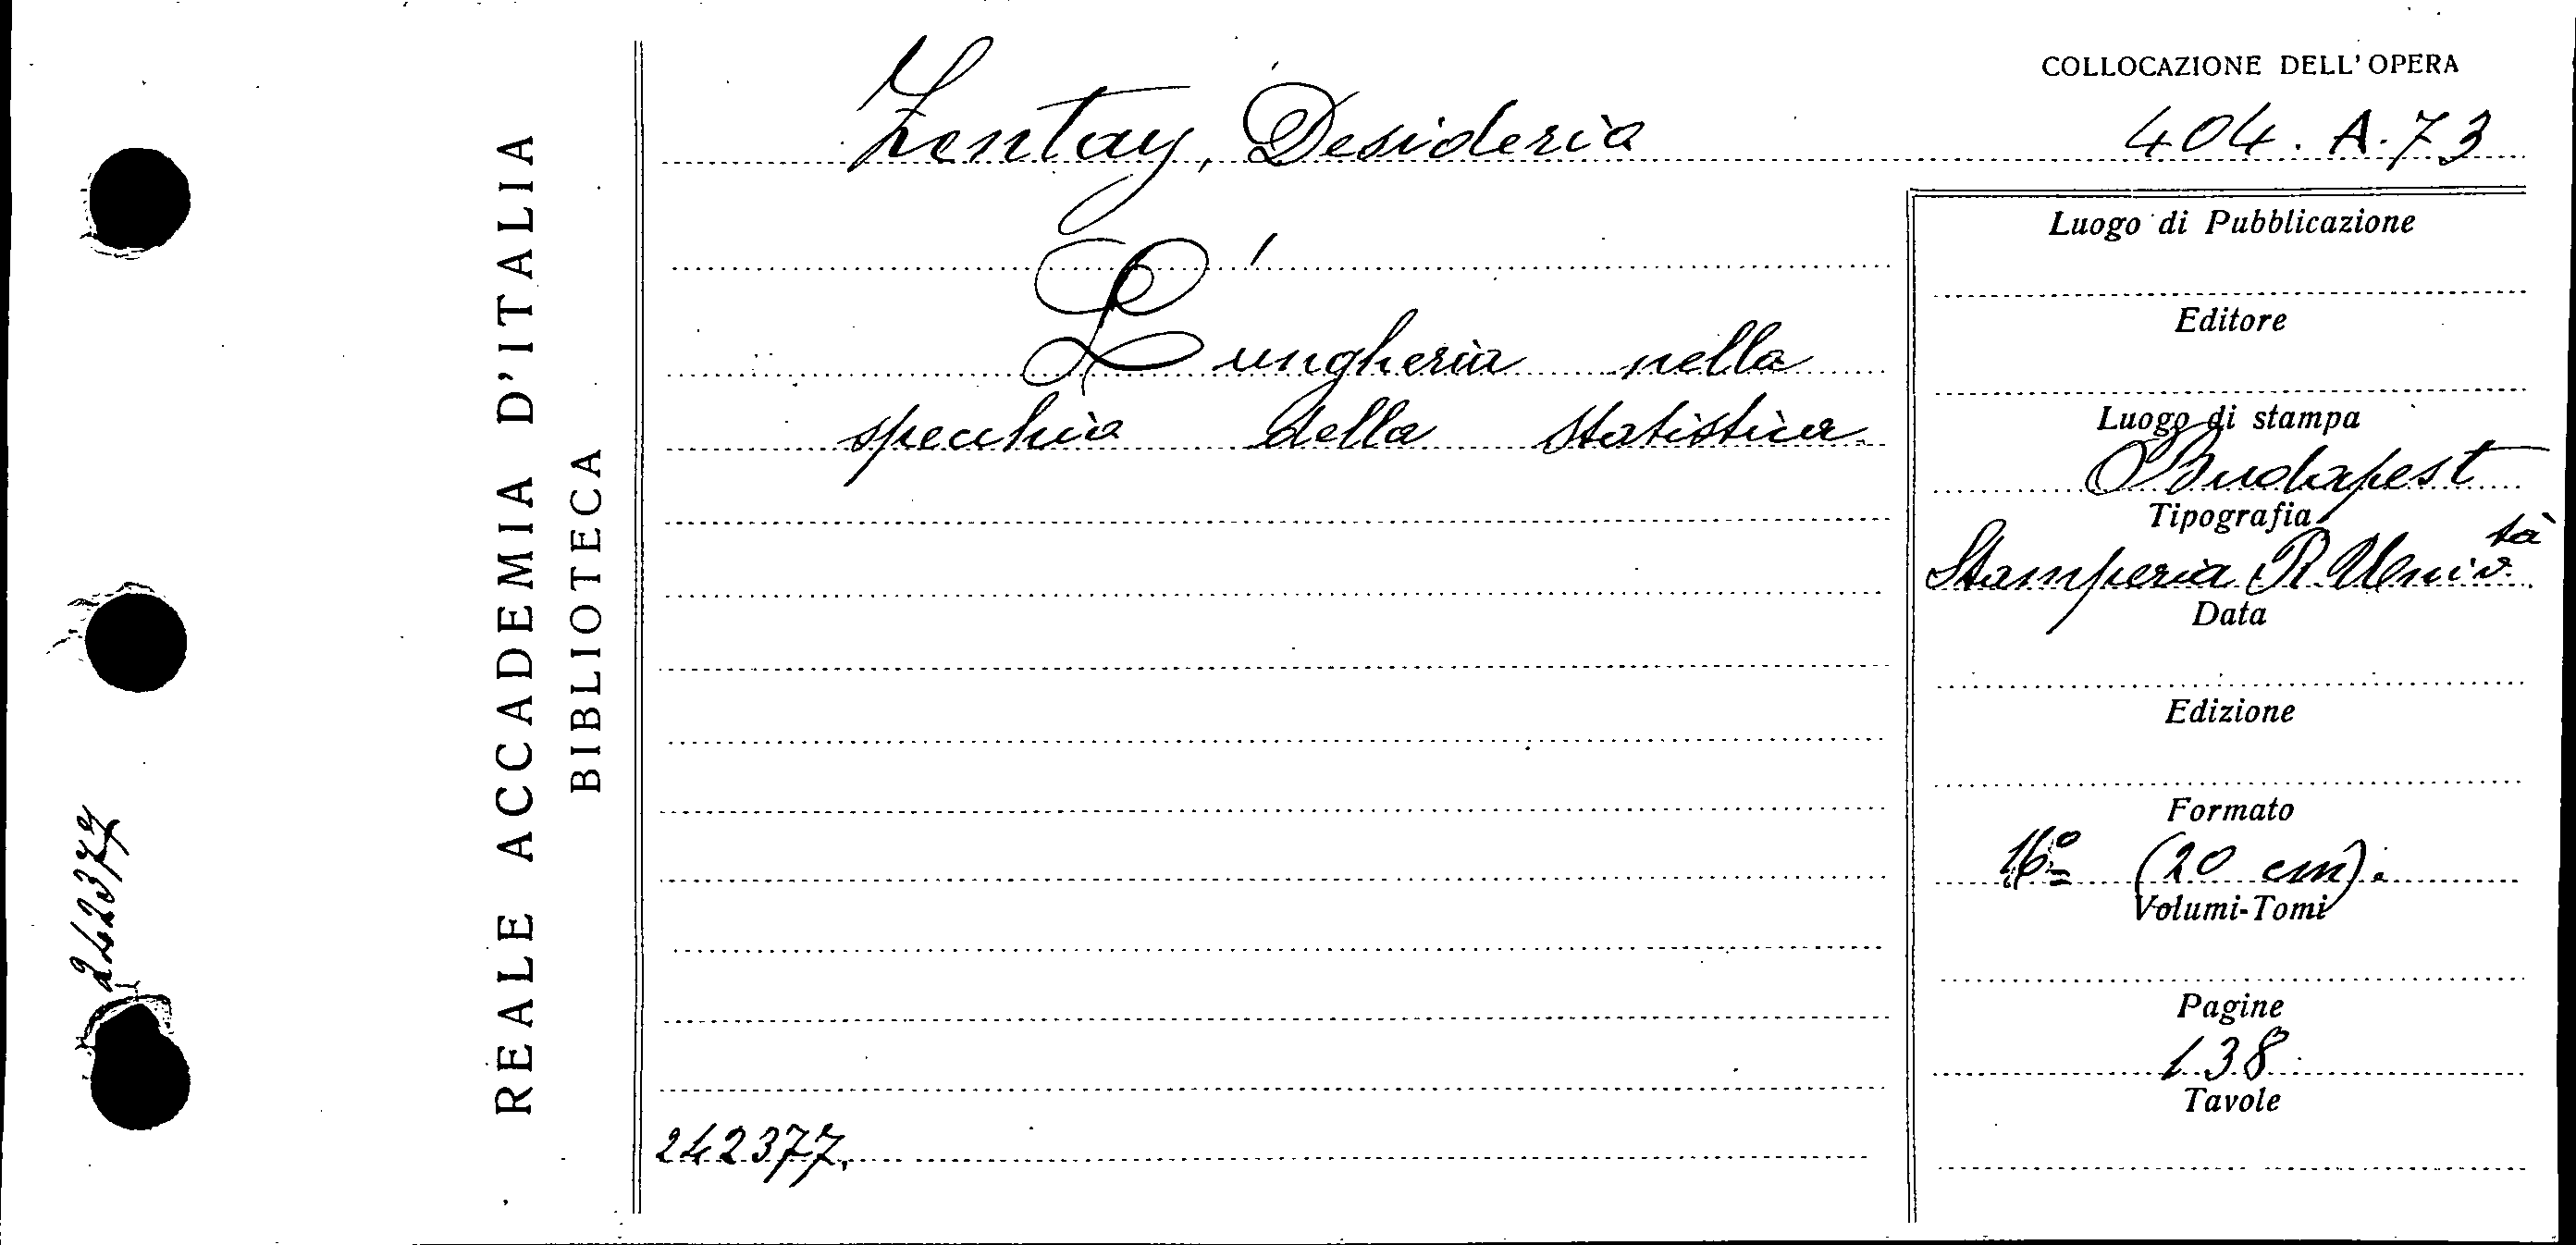 COLLOCAZIONE DELL'OPERA
Zentay, Desiderio
404. A. 73
L'ungheria nello
specchio della statistica
242377.
Luogo di Pubblicazione
Editore
Luogo di stampa
Budapest
Tipografia
Stamperia R. Univ.tà
Data
Edizione
Formato
16º (20 cm).
Volumi-Tomi
Pagine
138
Tavole
REALE ACCADEMIA D'ITALIA
BIBLIOTECA
242377